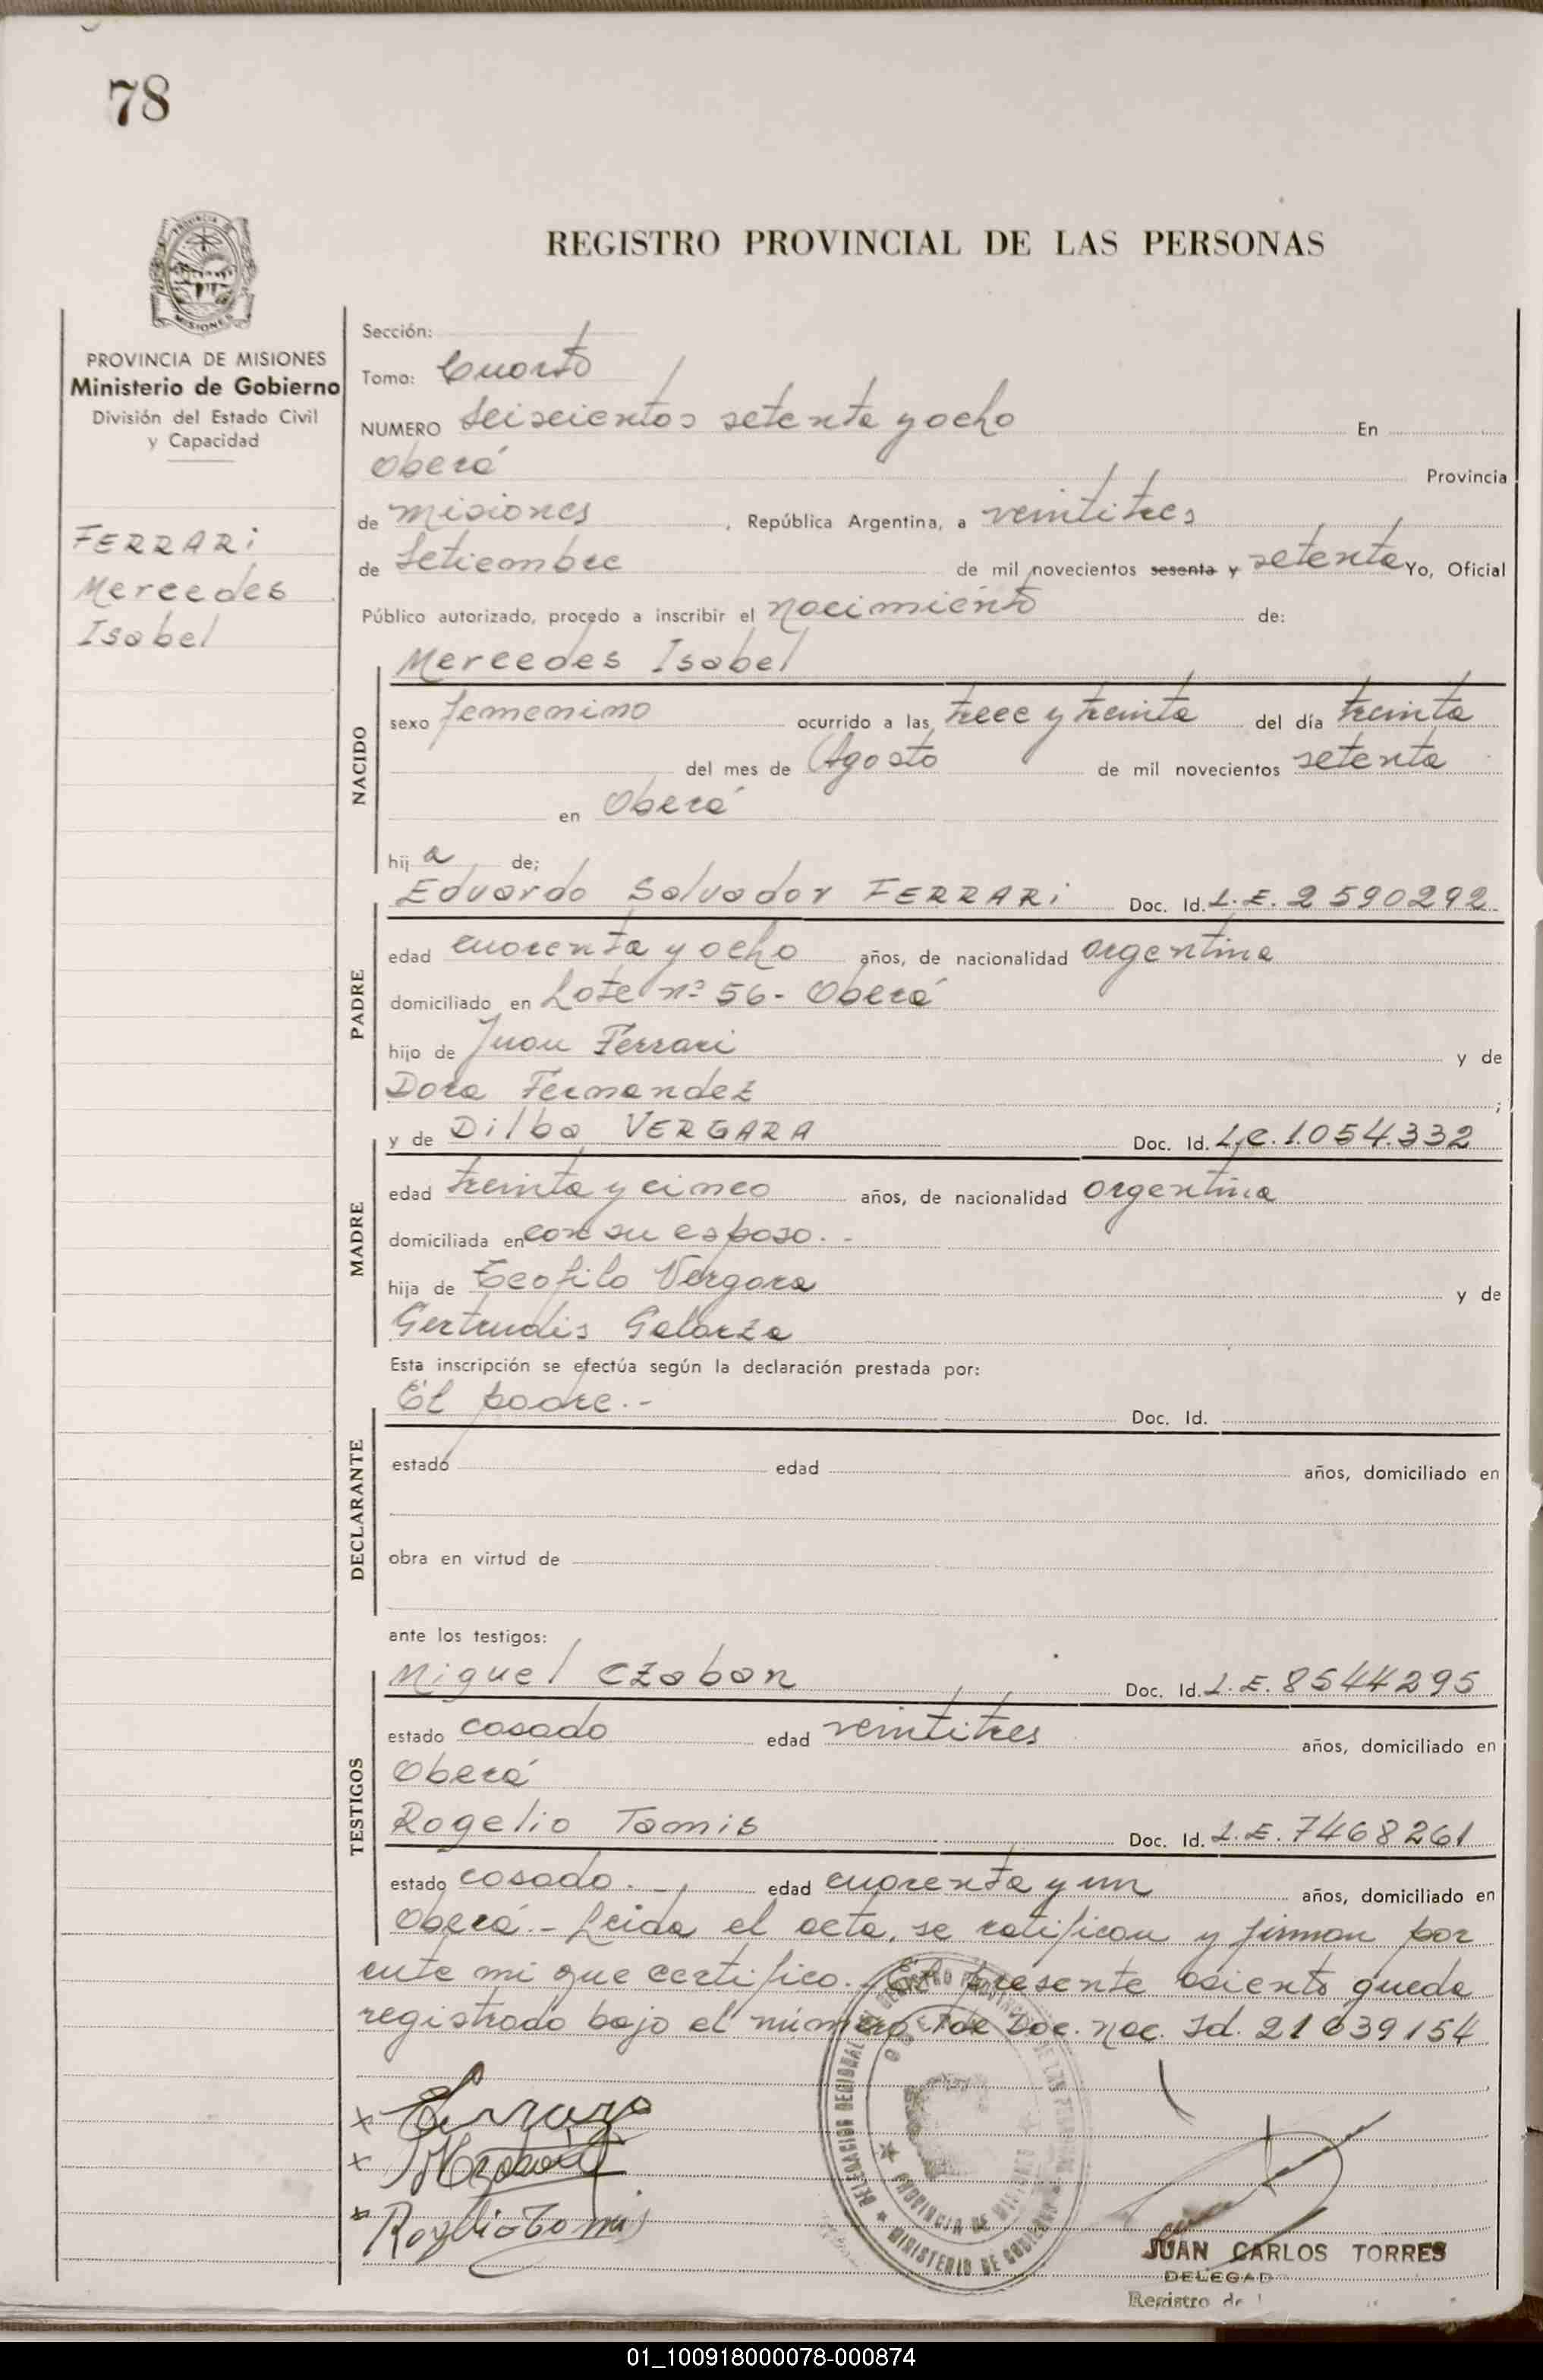 78
REGISTRO PROVINCIAL DE LAS PERSONAS
PROVINCIA DE MISIONES
Ministerio de Gobierno
División del Estado Civil
y Capacidad
FERRARi
Mercedes
Isabel
Sección:
Tomo: Cuarto
NUMERO Seiscientos setenta y ocho En
Oberá Provincia
de Misiones, República Argentina, a veintitres
de Setiembre de mil novecientos sesenta y setenta Yo, Oficial
Público autorizado, procedo a inscribir el nacimiento de:
Mercedes Isabel
NACIDO
sexo femenino ocurrido a las trece y treinta del día treinta
del mes de Agosto de mil novecientos setenta
en Oberá
hij a de;
Eduardo Salvador FERRARi Doc. Id. L.E. 2590292
PADRE
edad cuarenta y ocho años, de nacionalidad argentina
domiciliado en Lote nº 56- Oberá
hijo de Juan Ferrari y de
Dora Fernandez ;
y de Dilba VERGARA Doc. Id. L.C. 1.054.332
MADRE
edad treinta y cinco años, de nacionalidad argentina
domiciliada en con su esposo. -
hija de Teofilo Vergara y de
Gertrudis Galarza
Esta inscripción se efectúa según la declaración prestada por:
El padre.- Doc. Id.
DECLARANTE
estado edad años, domiciliado en
obra en virtud de
ante los testigos:
Miguel CZaban Doc. Id. L.E. 8544295
TESTIGOS
estado casado edad veintitres años, domiciliado en
Oberá
Rogelio Tamis Doc. Id. L.E. 7468261
estado casado.- edad cuarenta y un años, domiciliado en
Oberá.- Leida el acta, se ratifican y firman por
ante mi que certifico. El presente asiento queda
registrado bajo el número de Doc. nac. Id. 21639154
Rogelio Tomis
DELEGACION REGIONAL DEL REGISTRO PROVINCIAL DE LAS PERSONAS
OBERA
PROVINCIA DE MISIONES
MINISTERIO DE GOBIERNO
JUAN CARLOS TORRES
DELEGAD
Registro de
01_100918000078-000874